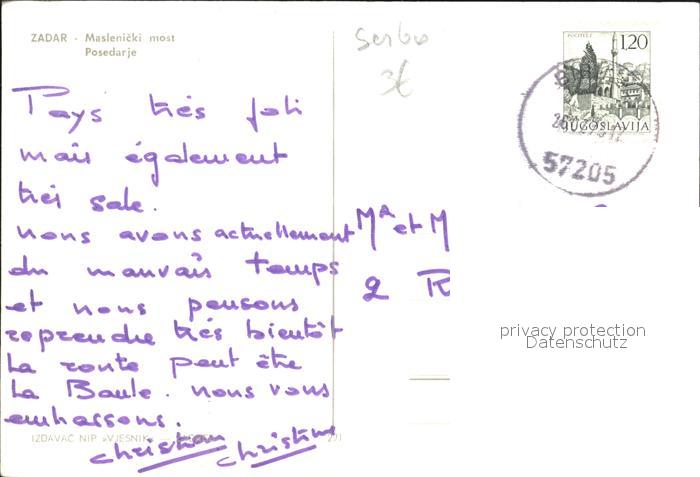 ZADAR - Maslenički most
Posedarje
Serbie
3€
POČITELJ
1,20
JUGOSLAVIJA
57205
Pays très joli
mais également
très sale.
nous avons actuellement
du mauvais temps
et nous pensons
reprendre très bientôt
la route peut être
La Baule. nous vous
embrassons.
christian
christine
IZDAVAČ NIP »VJESNIK«
271
Mr et M
2 R
privacy protection
Datenschutz